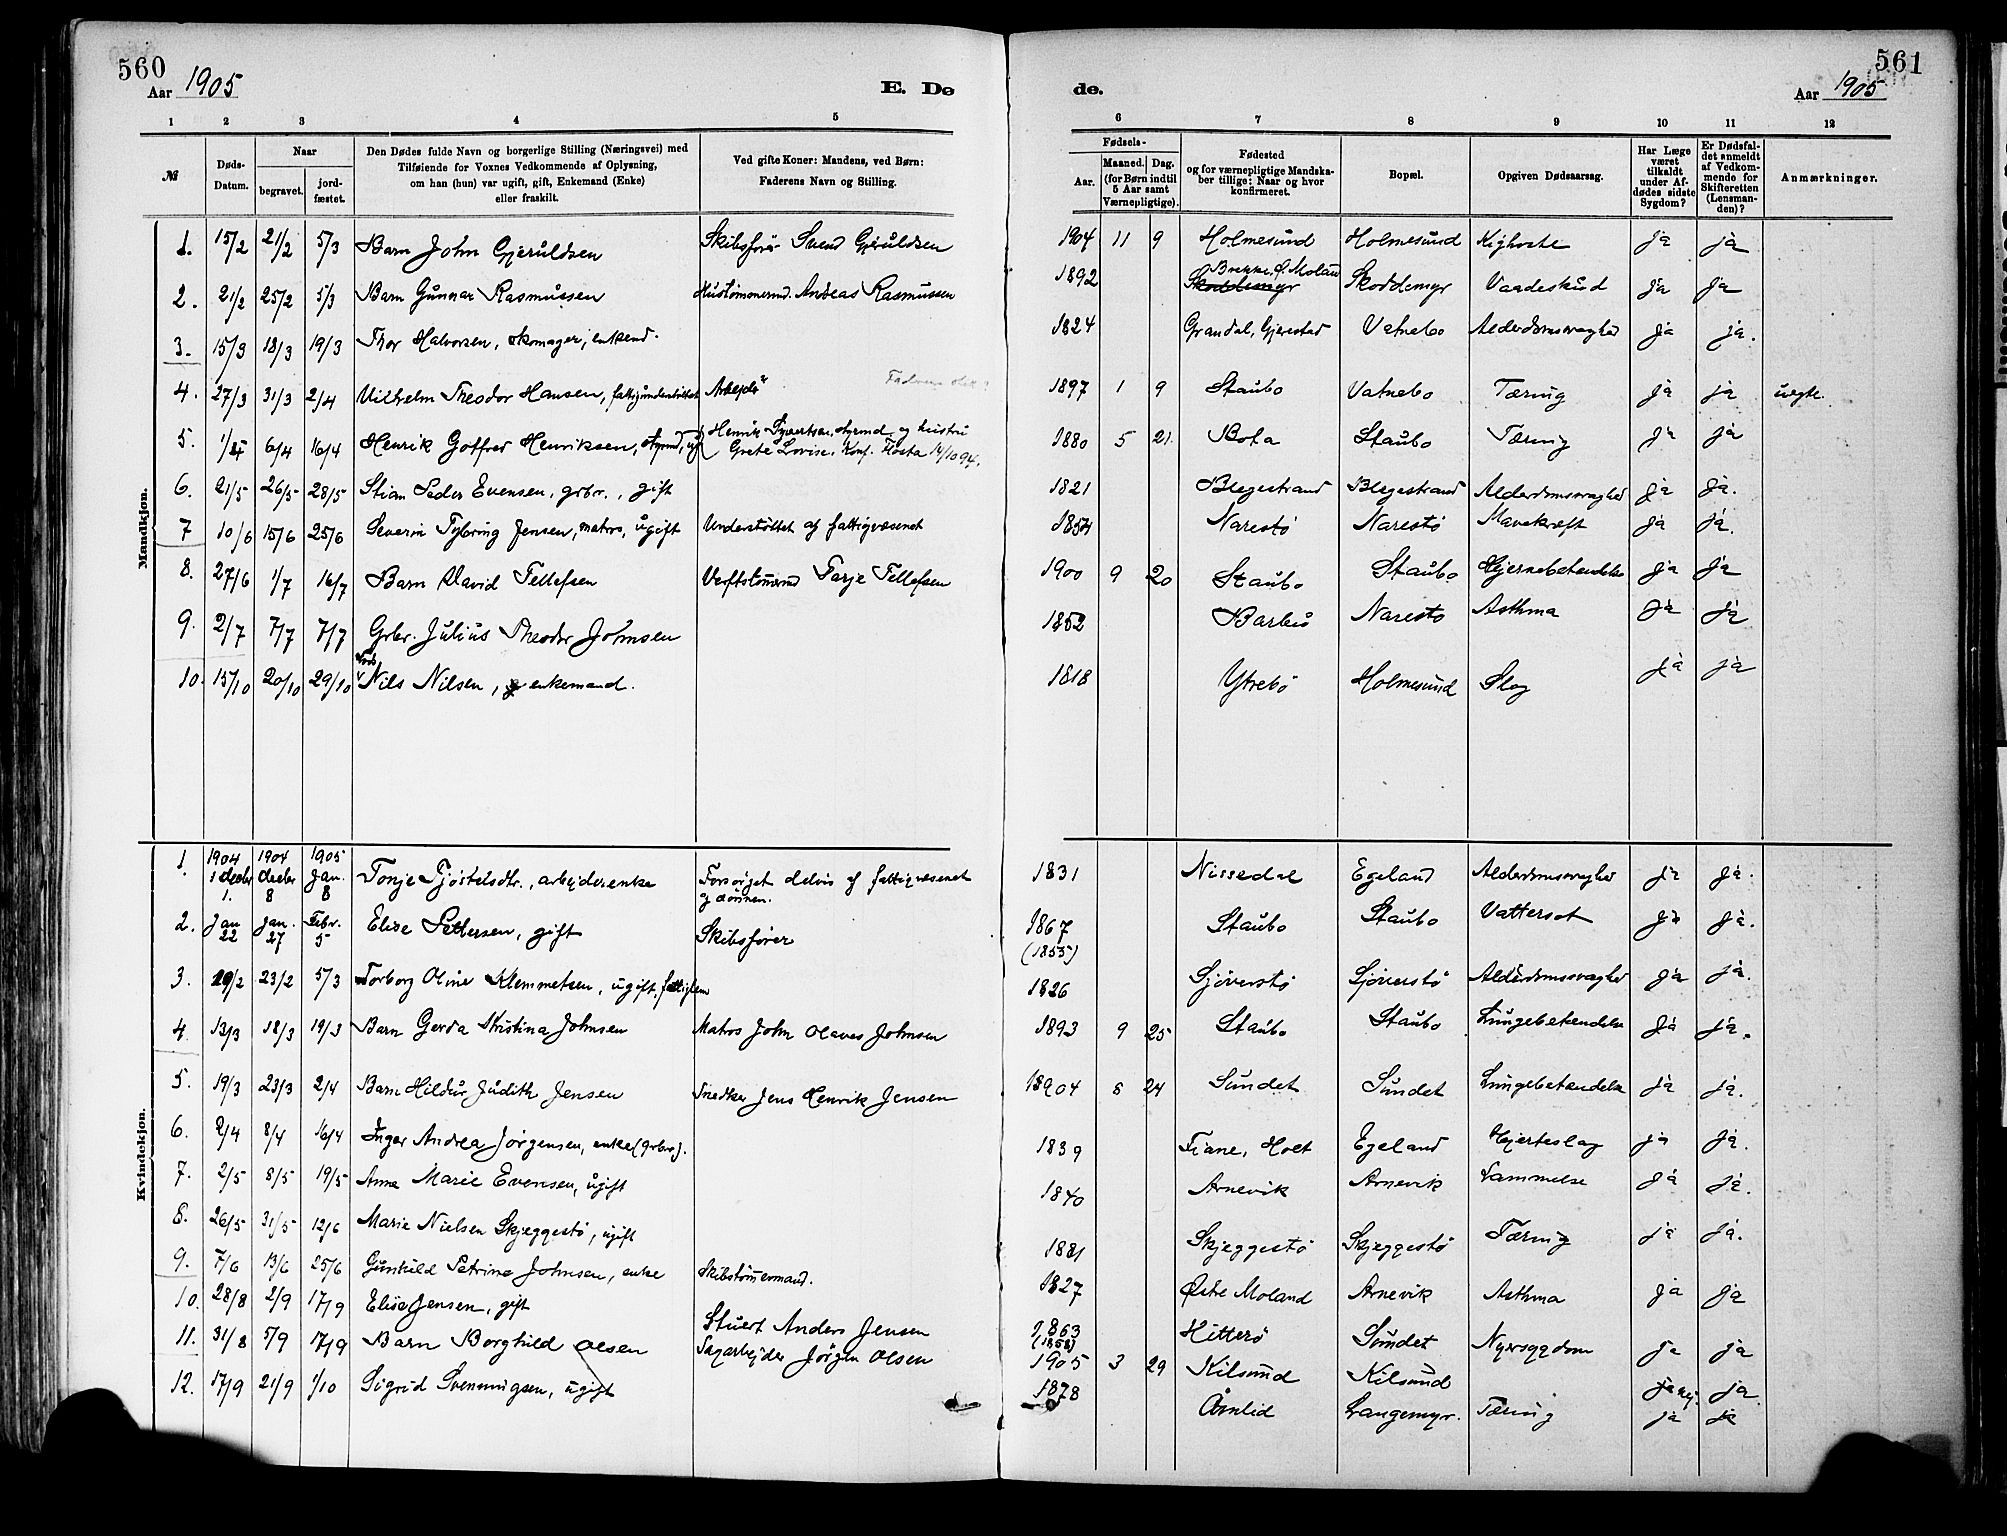 560
Aar 1905
E. Dø
1 2 3 4 5
№
Døds-Datum.
Naar
begravet.
jord-fæstet.
Den Dødes fulde Navn og borgerlige Stilling (Næringsvei) med
Tilføiende for Voxnes Vedkommende af Oplysning,
om han (hun) var ugift, gift, Enkemand (Enke)
eller fraskilt.
Ved gifte Koner: Mandens, ved Børn:
Faderens Navn og Stilling.
Mandkjøn.
1. 15/2 21/2 5/3 Barn John Gjeruldsen Skibsfør. Svend Gjeruldsen
2. 21/2 25/2 5/3 Barn Gunnar Rasmussen Hustømmermd. Andreas Rasmussen
3. 15/3 18/3 19/3 Thor Halvorsen, skomager, enkemd.
4. 27/3 31/3 2/4 Vilhelm Theodor Hansen, fattigunderstøttet Arbejder
5. 6/4 16/4 Henrik Gotfred Henriksen, styrmd, ug. Henrik Syvertsen, styrmd og hustru
Grete Lovise. Konf. Flosta 14/10 94.
6. 21/5 26/5 28/5 Stian Peder Evensen, grbr., gift
7 10/6 15/6 25/6 Severin Tybring Jensen, matros, ugift Understøttet af fattigvæsenet
8. 27/6 1/7 16/7 Barn David Tellefsen Verftstømmermd Tarje Tellefsen
9. 2/7 7/7 7/7 Grbr. Julius Theodor Johnsen
10. 15/10 20/10 29/10 Nils Nilsen, enkemand.
Kvindekjøn.
1. 1904 1904 1905
1 decbr decbr Jan.
1. 8 8 Tonje Tjøstelsdtr., arbejderenke Forsørget delvis af fattigvæsenet
og sønnen.
2. Jan 22 Jan. 27 Febr. 5 Elise Pettersen, gift Skibsfører
3. 19/2 23/2 5/3 Torborg Oline Klemmetsen, ugift, fattiglem
4. 13/3 18/3 19/3 Barn Gerda Kristina Johnsen Matros John Olaves Johnsen
5. 19/3 23/3 2/4 Barn Hildur Judith Jensen Snedker Jens Henrik Jensen
6. 2/4 8/4 16/4 Inger Andrea Jørgensen, enke (grbr.).
7. 2/5 8/5 19/5 Anne Marie Evensen, ugift
8. 26/5 31/5 12/6 Marie Nielsen Skjeggestø, ugift
9. 7/6 13/6 25/6 Gunhild Petrine Johnsen, enke Skibstømmermand.
10. 28/8 2/9 17/9 Elise Jensen, gift Stuert Anders Jensen
11. 31/8 5/9 17/9 Barn Borghild Olsen Sagarbejder Jørgen Olsen
12. 17/9 21/9 1/10 Sigrid Svenningsen, ugift
561
de.
Aar 1905
6 7 8 9 10 11 12
Fødsels-
Aar.
Maaned. Dag.
(for Børn indtil
5 Aar samt
Værnepligtige).
Fødested
og for værnepligtige Mandska-
ber tillige: Naar og hvor
konfirmeret.
Bopæl.
Opgiven Dødsaarsag.
Har Læge
været
tilkaldt
under Af-
dødes sidste
Sygdom?
Er Dødsfal-
det anmeldt
af Vedkom-
mende for
Skifteretten
(Lensman-
den)?
Anmærkninger.
1904 11 9 Holmesund Holmesund Kighoste ja ja
Brekke, Ø. Moland
1892 Skoddemyr Skoddemyr Vaadeskud ja ja
1824 Grandal, Gjerestad Vatnebo Alderdomssvaghed ja ja.
1897 1 9 Staubo Vatnebo Tæring ja ja uegte.
1880 5 21. Bota Staubo Tæring ja ja
1821 Blegestrand Blegestrand Alderdomssvaghed ja ja.
1854 Narestø Narestø Mavekræft ja ja.
1900 9 20 Staubo Staubo Hjernebetændelse ja ja
1852 Barbu Narestø Asthma ja ja
1818 Ytrebø Holmesund Slag ja ja
1831 Nissedal Egeland Alderdomssvaghed ja ja.
1867 Staubo Staubo Vattersot ja ja.
(1855)
1826 Sjøverstø Sjøverstø Alderdomssvaghed ja ja.
1893 9 25 Staubo Staubo Lungebetændelse ja ja.
1904 8 24 Sundet Sundet Lungebetændelse ja ja.
1839 Fiane, Holt Egeland Hjerteslag ja ja.
1840 Arnevik Arnevik Lammelse ja ja.
1881 Skjeggestø Skjeggestø Tæring ja ja.
1827 Østre Moland Arnevik Asthma ja ja
1863 Hitterø Sundet Nyresygdom ja ja
(1858)
1905 3 29 Kilsund Kilsund ja
1878 Åmlid Langemyr. Tæring ja ja